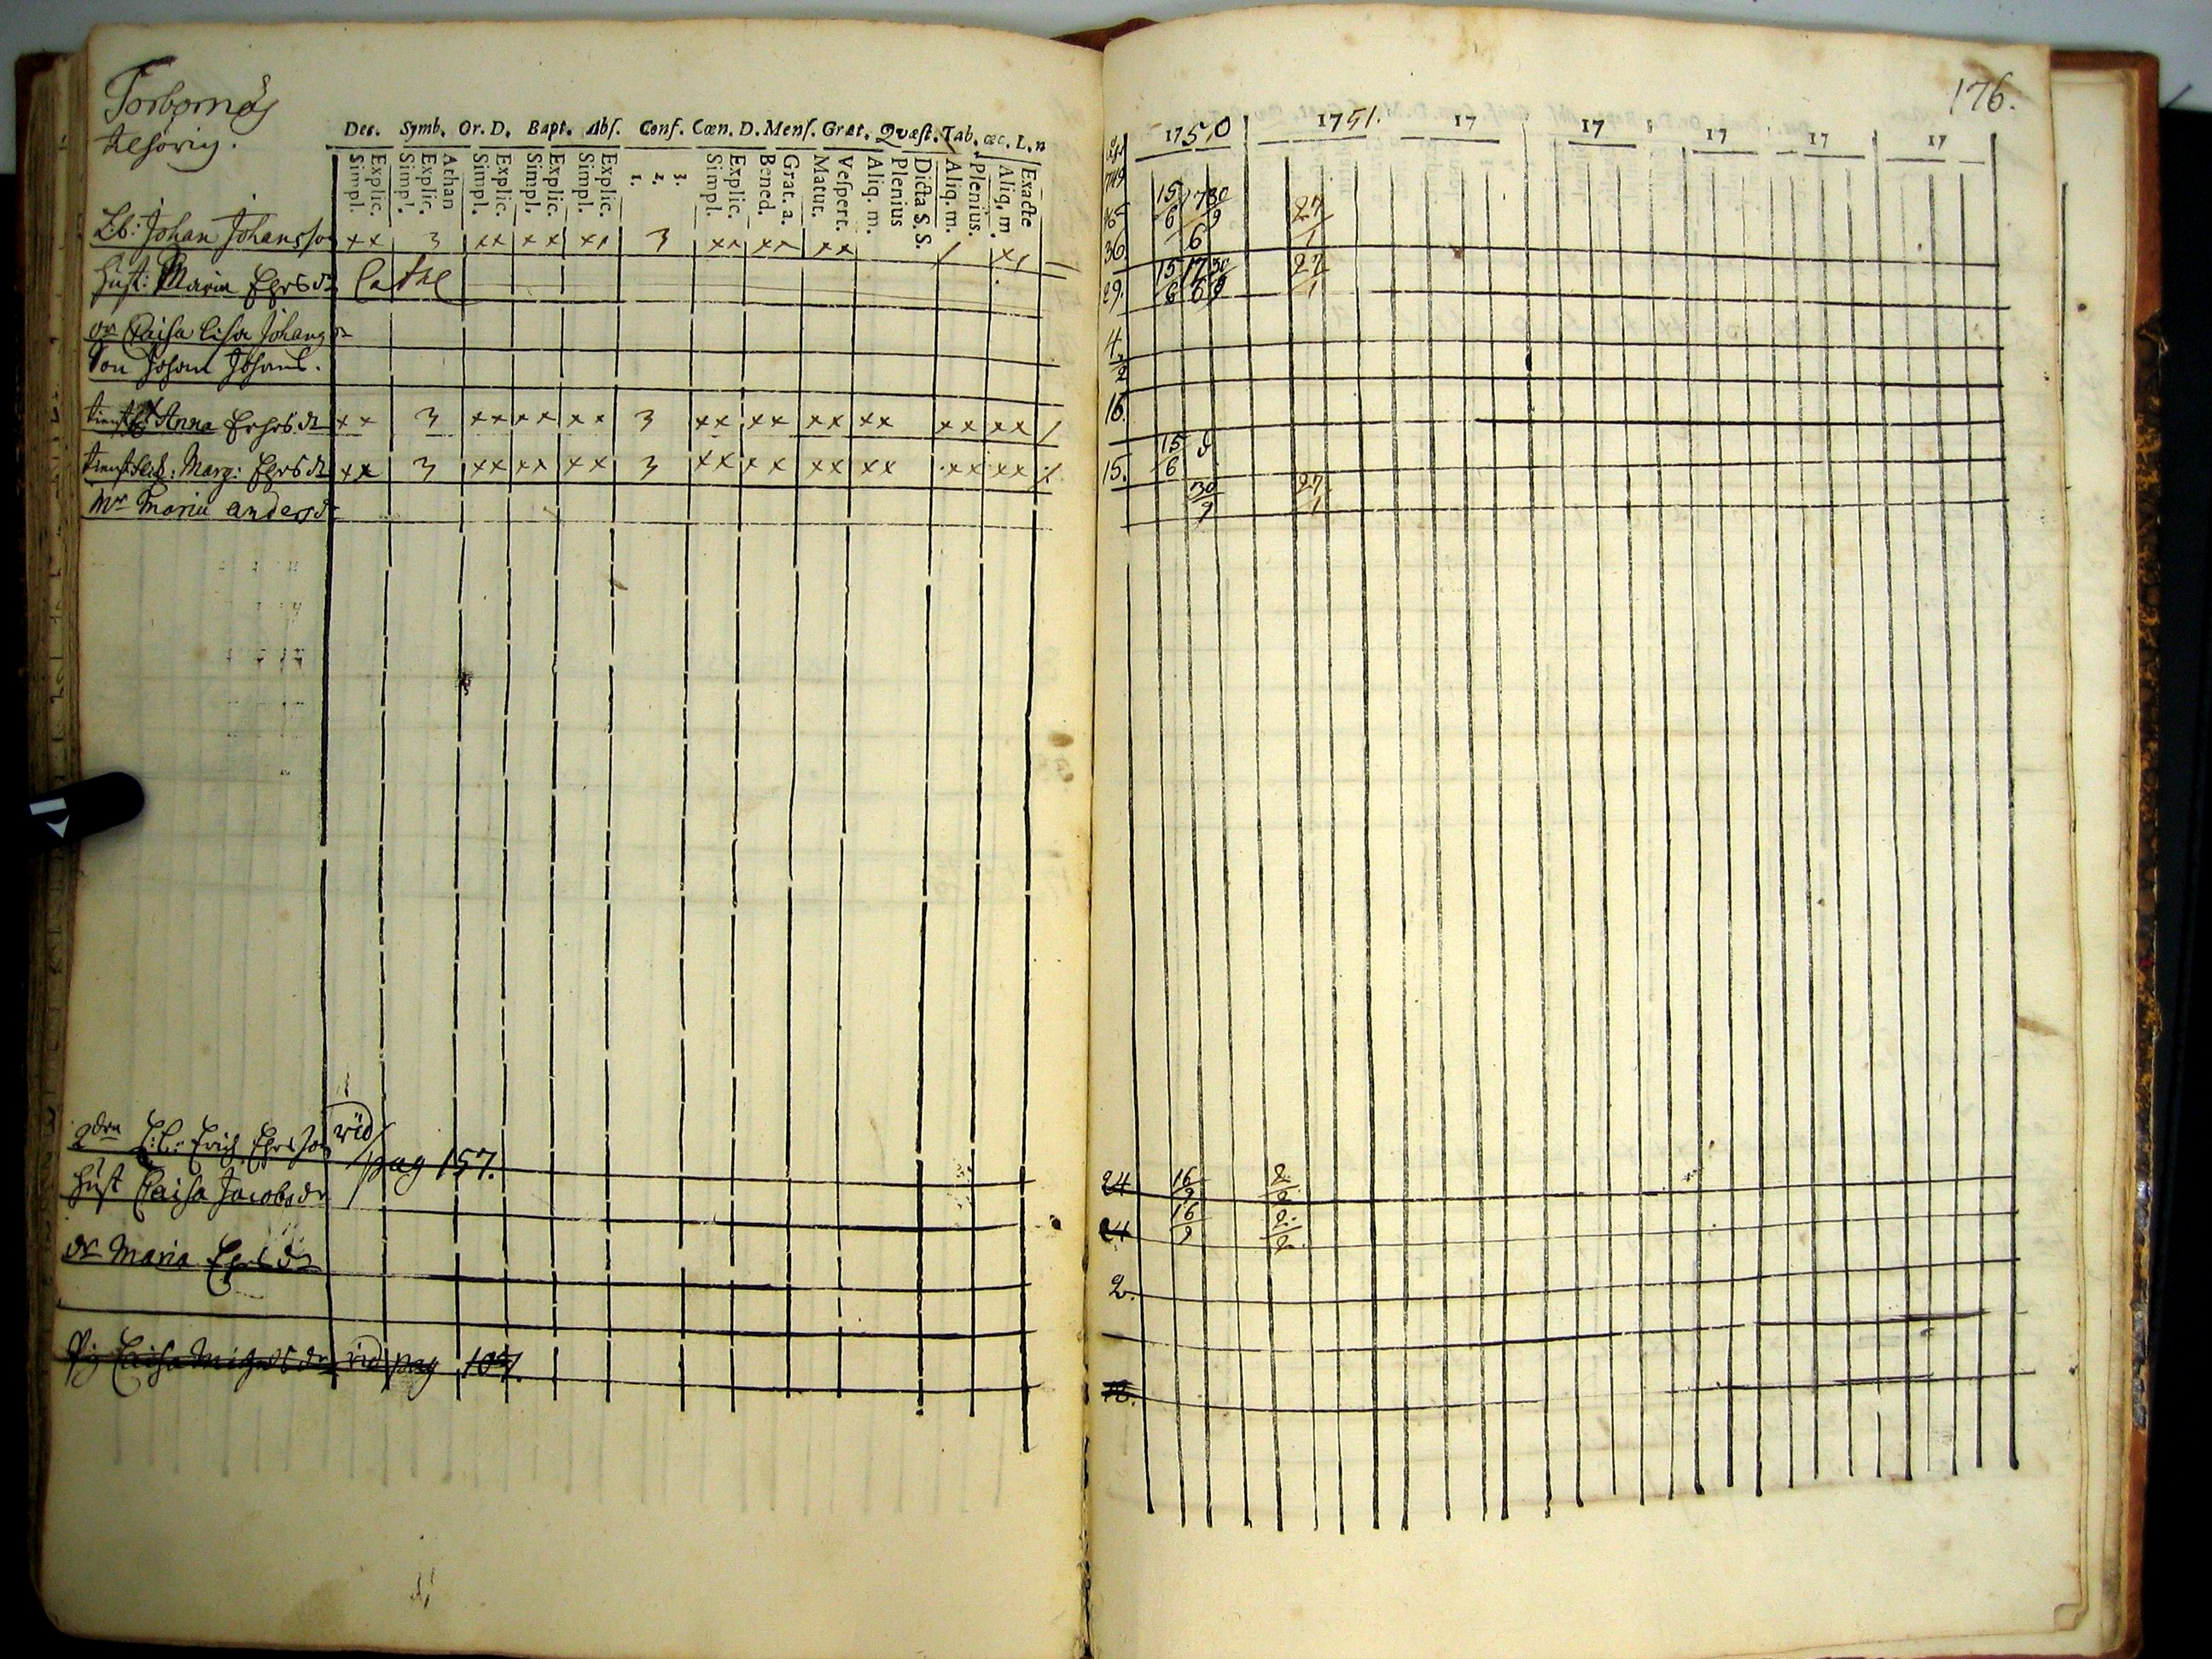 176.
Torbornäs
Dec. Symb. Or. D. Bapt. Abs. Conf. Cœn. D. Mens. Grat. Quæst. Tab. œc. L. n
1750 1751. 17 17 17 17 17
Simpl. Explic. Simpl. Explic. Athan Simpl. Explic. Simpl. Explic. Simpl. Explic. 1. 2. 3. Simpl. Explic. Bened. Grat. a. Matut. Vespert. Aliq. m. Plenius Dicta S. S. Aliq. m. Plenius. Aliq. m. Exacte
Johan Johansson xx 3 xx xx xx 3 xx xx xx 36. 15/6 17/6 30/9 27/1
Hust: Maria Ehrsdr 29. 15/6 17/6 30/9 27/1
dr Caisa Lisa Johansdr 4.
Son Johan Johans. 2
Anna Ehrsdr xx 3 xx xx xx 3 xx xx xx xx xx xx 16.
Marg: Ehrsdr xx 3 xx xx xx 3 xx xx xx xx xx xx 15. 15/6
Mr Maria Andersdr 30/9 27/1
Erich Ehrsson vid
pag 157. 24 16/9 2/2
Hust Caisa Jacobsdr 24 16/9 2/2
dr Maria Ehrsdr 2.
Caisa vid pag